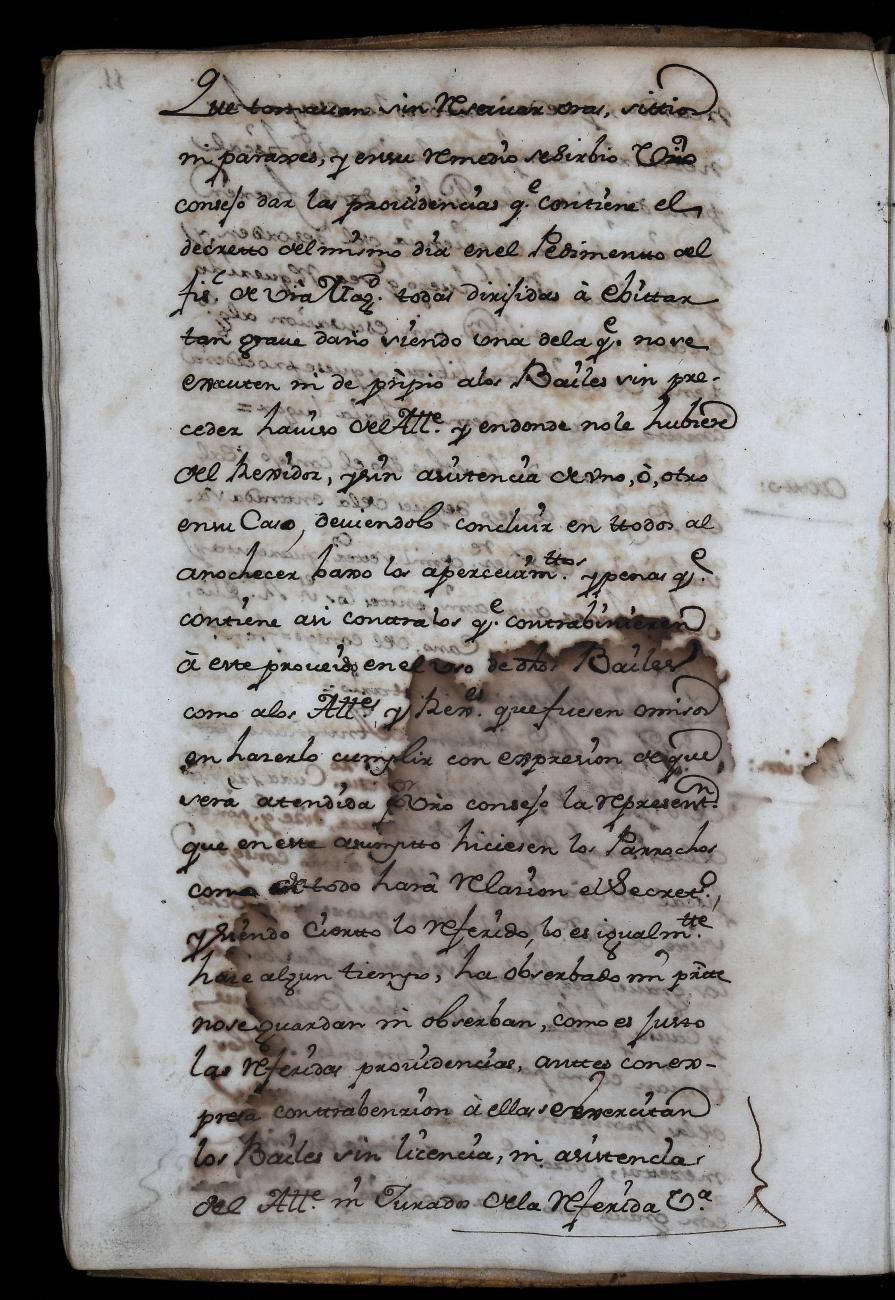 Que tomavan sin reservar oras, sittios
ni parajes, y en su remedio se sirbio Vrõ
consejo dar las providencias q.e contiene el
decretto del mismo dia en el Pedimento del
fis.l de Vrã Mag.d todas dirijidas à ebittar
tan grave daño siendo una de la q.e no se
executen ni de prĩpio a los Bailes sin pre-
ceder haviso del Alle. y en donde no le hubiere
del Rexidor, y sin asistencia de uno, ò, otro
en su Caso, deviendolo concluir en ttodos al
anochecer baxo los apercevim.ttos y penas q.e
contiene asi conttra los q.e contrabinieren
à este proveido en el uso de dhõs Bailes
como a los All.es y Rex.es que fuesen omisos
en hazerlo cumplir con expresion de que
serà atendida p.r Vrõ consejo la represent.n
que en este asumptto hiciesen los Parrochos
como de todo harà relasion el Secret.o,
y siendo Cierto lo referido, lo es igualm.tte
hace algun tiempo, ha obserbado mi prãte
no se guardan ni obserban, como es justo
las referidas providencias, anttes con ex-
presa conttrabenzion à ellas se exercitan
los Bailes sin licencia, ni asistencia
del Alle. ni Jurado de la referida V.a